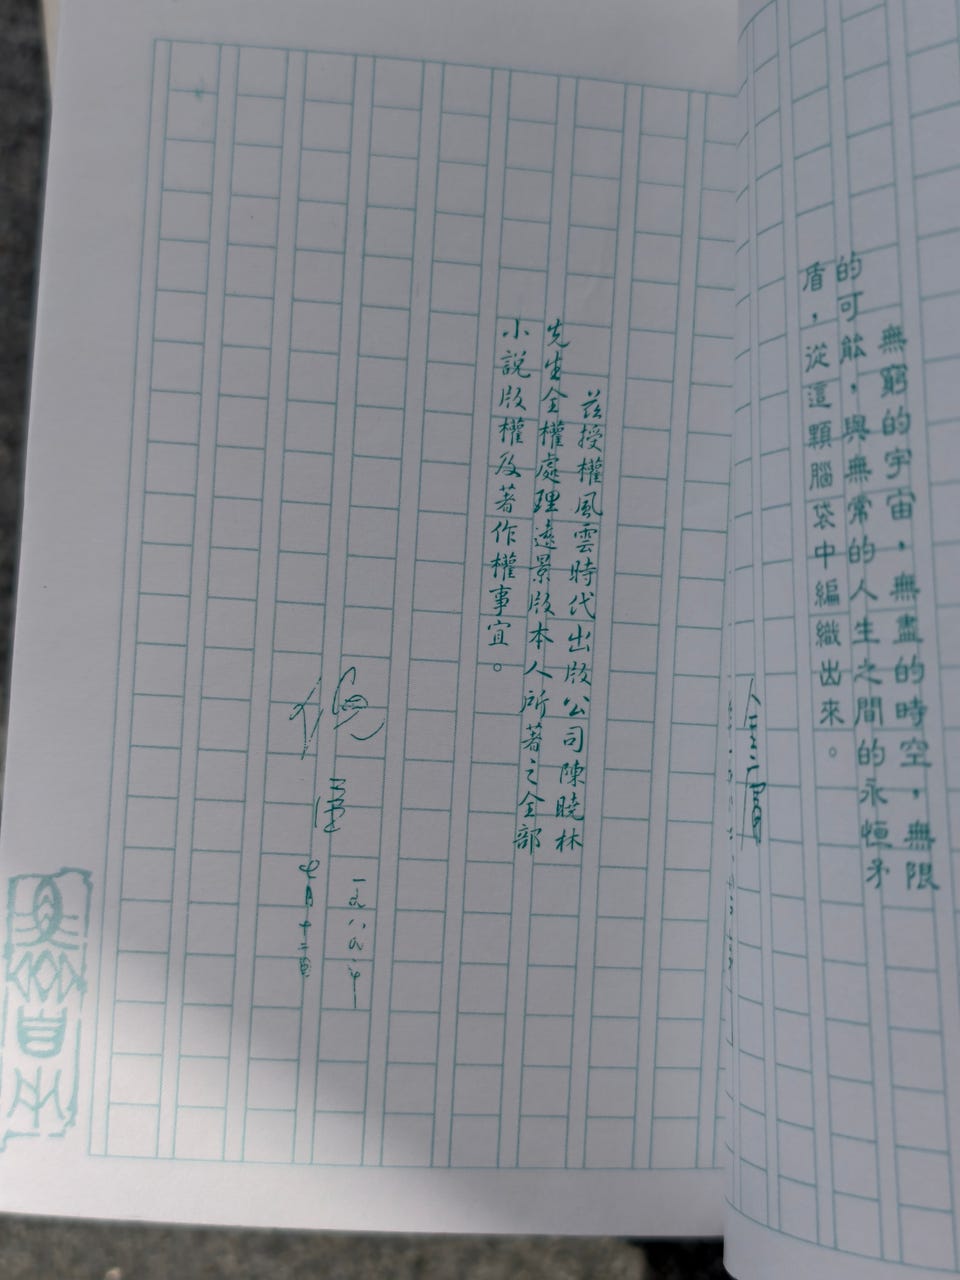 無窮的宇宙，無盡的時空，無限
的可能，與無常的人生之間的永恒矛
盾，從這顆腦袋中編織出來。
茲授權風雲時代出版公司陳曉林
先生全權處理遠景版本人所著之全部
小說版權及著作權事宜。
倪匡
一九八九年
七月十二日